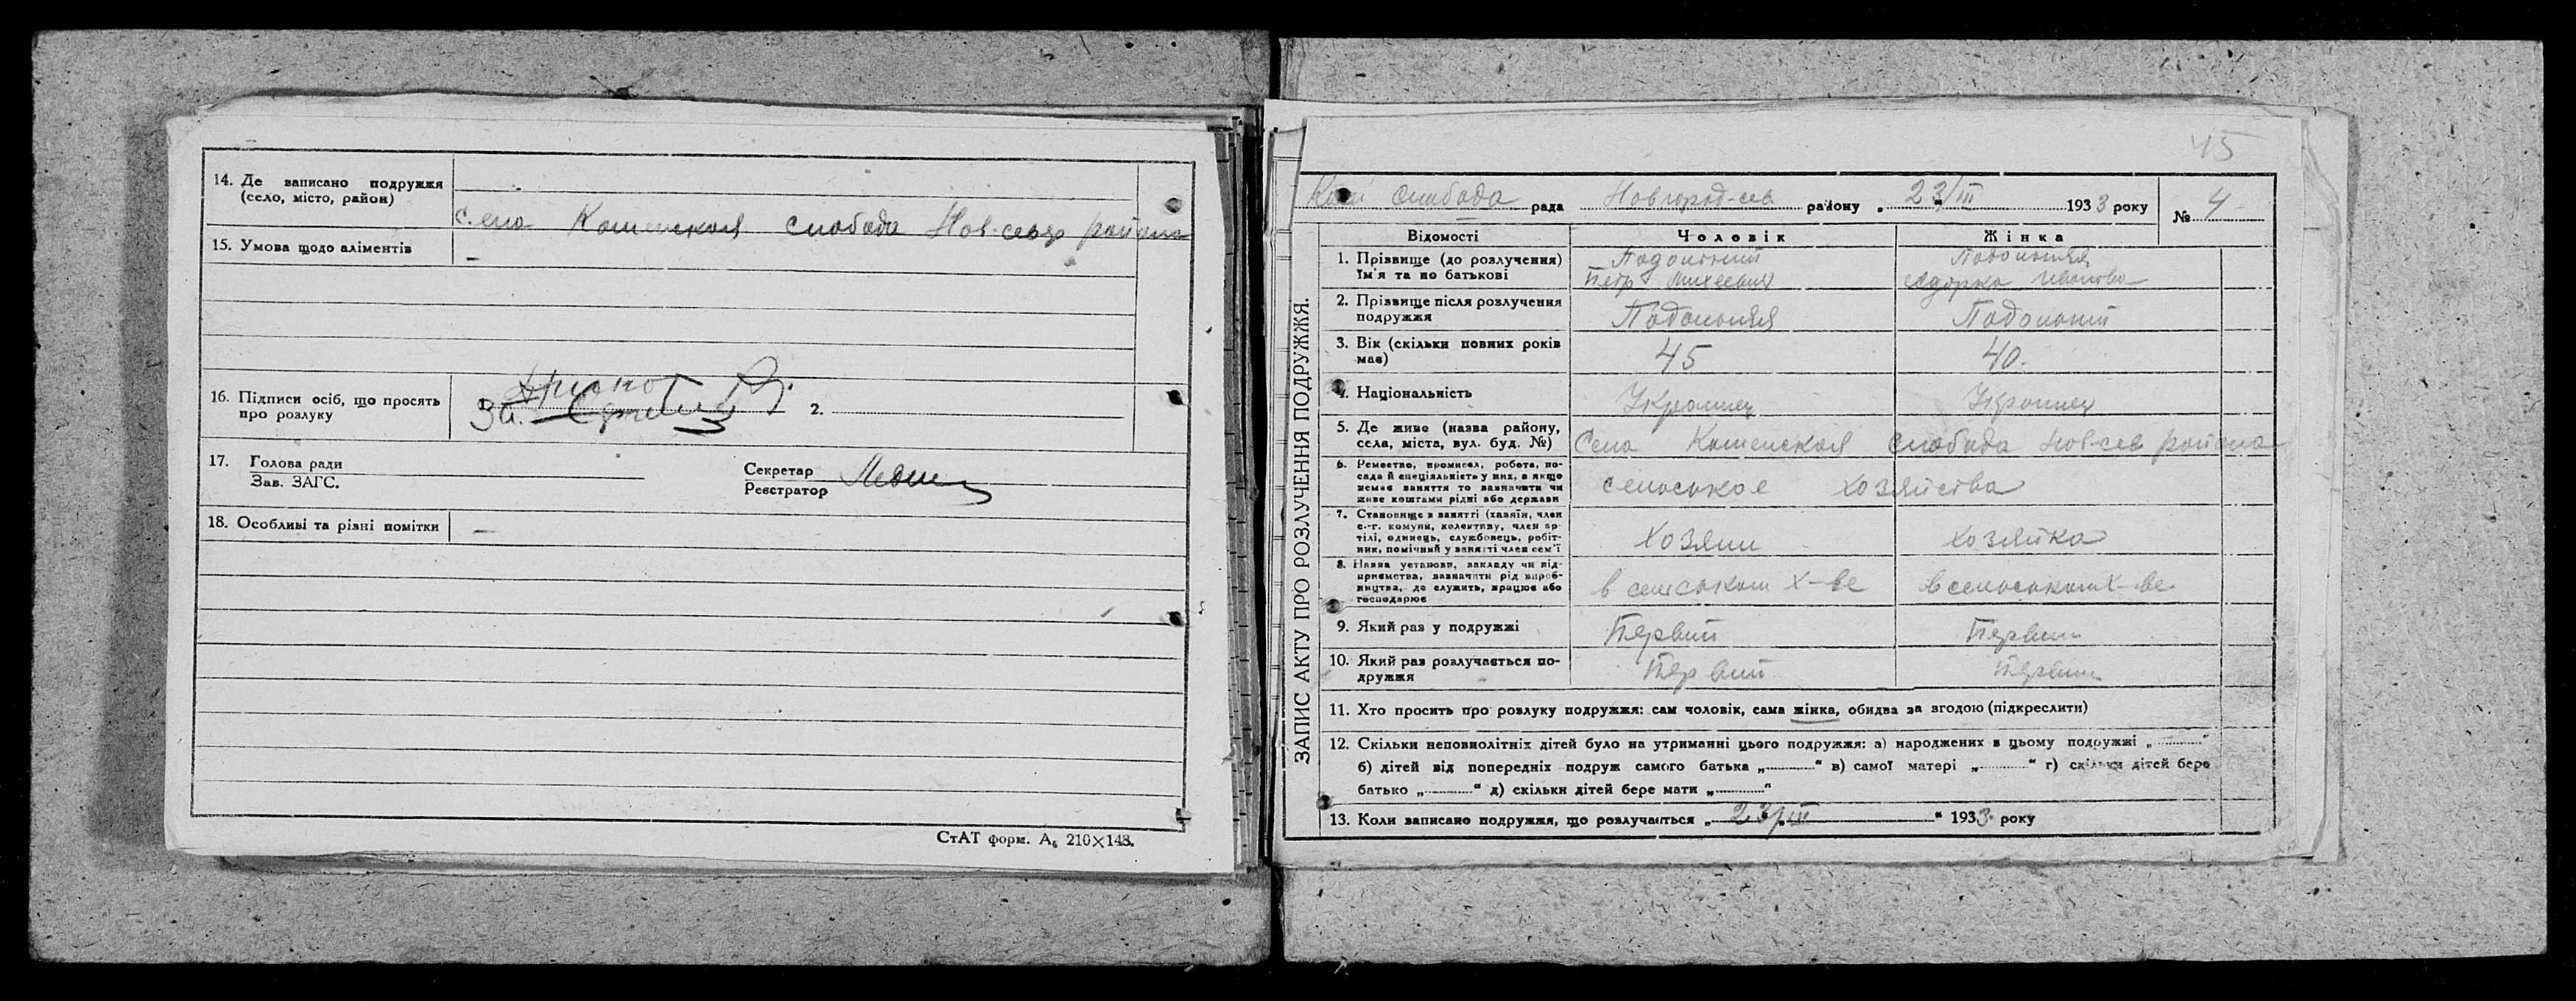 14. Де записано подружжя
(село, місто, район)
Села Каменская слабода Нов-севр района
15. Умова щодо аліментів
–
16. Підписи осіб, що просять
про розлуку
1.
За.
2.
17. Голова ради
Зав. ЗАГС.
Секретар
Реєстратор
18. Особливі та різні помітки
–
СтАТ форм. А₅ 210×148.
45
Кам слабода рада Новгород-сев району „ 23/III 1933 року
№ 4
ЗАПИС АКТУ ПРО РОЗЛУЧЕННЯ ПОДРУЖЖЯ.
Відомості Чоловік Жінка
1. Прізвище (до розлучення)
ім'я та по батькові
Петр Михеевич
Ивановна
2. Прізвище після розлучення
подружжя
3. Вік (скільки повних років
має)
45 40.
4. Національність
Украинец Украинец
5. Де живе (назва району,
села, міста, вул. буд. №)
Села Каменская слабода Нов-сев района
6. Ремество, промисел, робота, по-
сада й спеціяльність у них, а якщо
немає заняття то зазначити чи
живе коштами рідні або держави
сельськое хозяйства
7. Становище в занятті (хазяїн, член
с.-г. комуни, колективу, член ар-
тілі, одинець, службовець, робіт-
ник, помічний у занятті член сем'ї
хозяин хозяйка
8. Назва установи, закладу чи під-
приємства, зазначити рід вироб-
ництва, де служить, працює або
господарює
в сельськом х-ве в сельськом х-ве
9. Який раз у подружжі
Первий Первий
10. Який раз розлучається по-
дружжя
Первий Первий
11. Хто просить про розлуку подружжя: сам чоловік, сама жінка, обидва за згодою (підкреслити)
12. Скільки неповнолітніх дітей було на утриманні цього подружжя: а) народжених в цьому подружжі „ “
б) дітей від попередніх подруж самого батька „ “ в) самої матері „ “ г) скільки дітей бере
батько „ “ д) скільки дітей бере мати „ “
13. Коли записано подружжя, що розлучається „ 23/III “ 1933 року